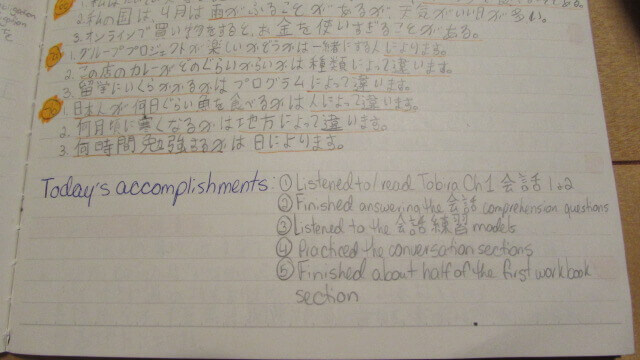 2. 私の国は、4月は雨がふることがあるが、天気がいい日が多い。
3. オンラインで買い物をすると、お金を使いすぎることがある。
1. グループプロジェクトが楽しいかどうかは一緒にする人によります。
2. この店のカレーがどのぐらいからいかは種類によって違います。
3. 留学にいくらかかるかはプログラムによって違います。
1. 日本人が何日ぐらい魚を食べるかは人によって違います。
2. 何月頃に寒くなるかは地方によって違います。
3. 何時間勉強するかは日によります。
Today's accomplishments: ① Listened to/read Tobira Ch1 会話 1+2
② Finished answering the 会話 comprehension questions
③ Listened to the 会話練習 models
④ Practiced the conversation sections
⑤ Finished about half of the first workbook
section